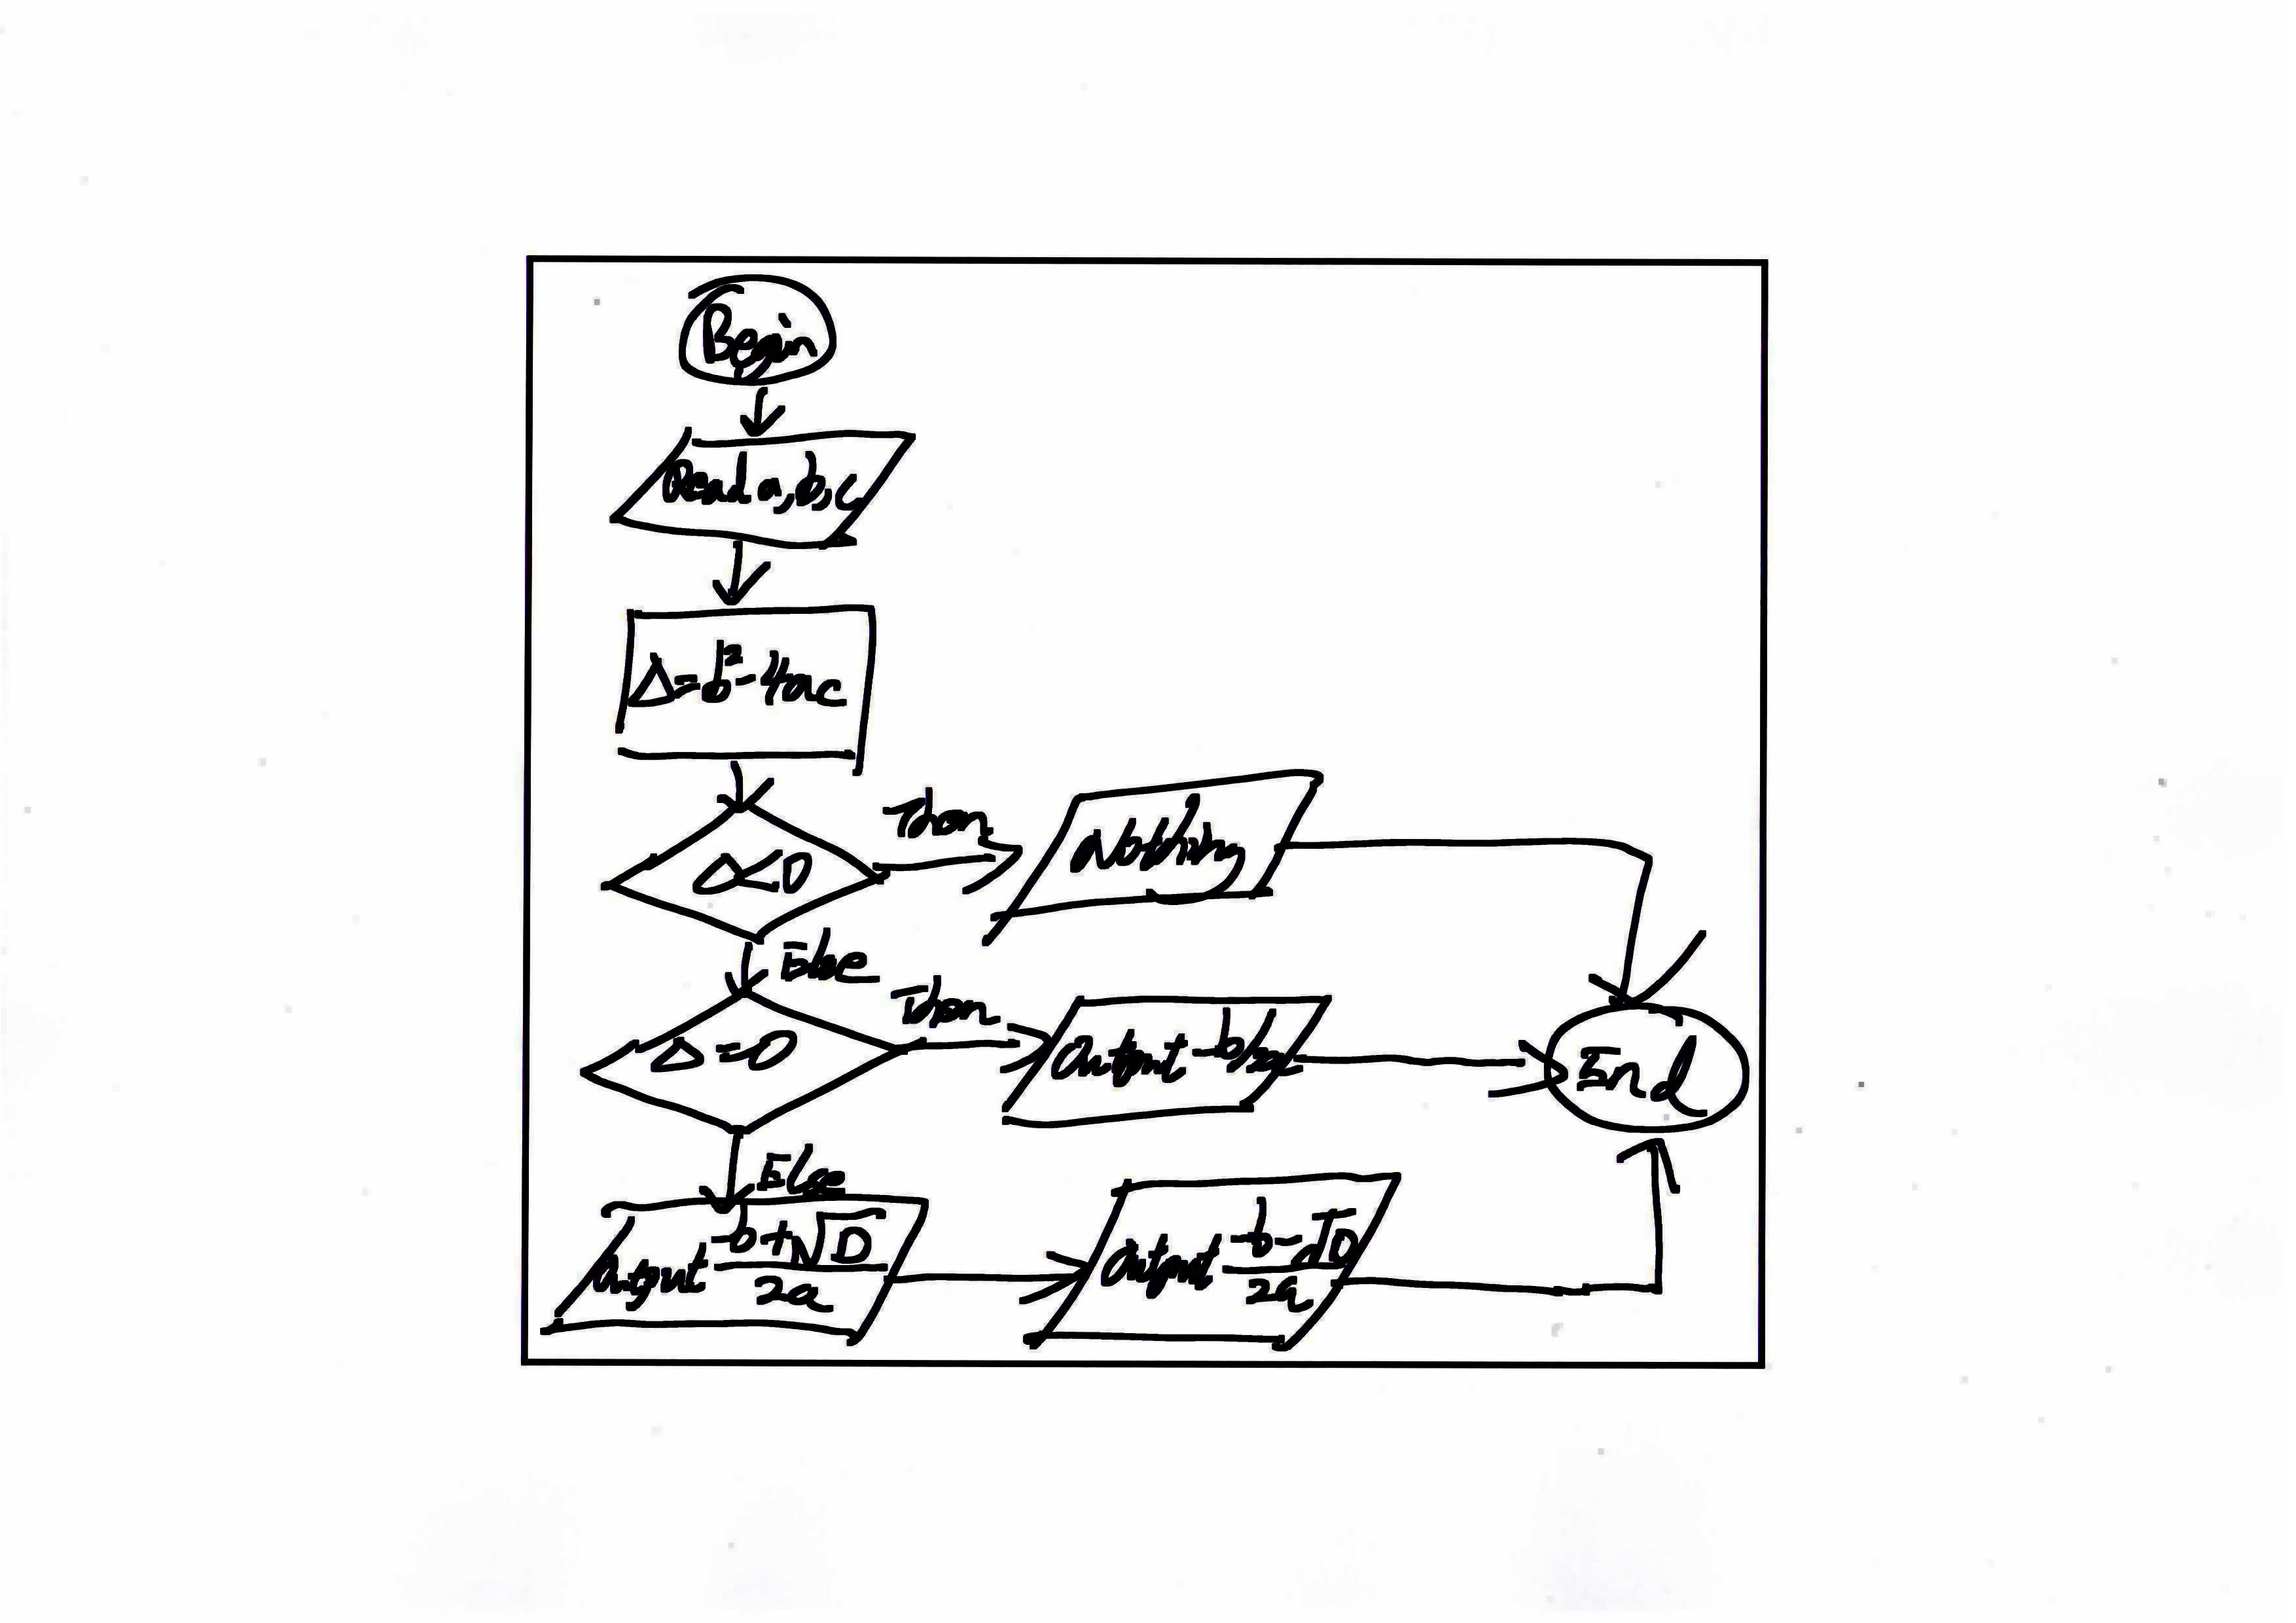 Begin
Read a,b,c
Δ=b²-4ac
Δ<0
Then
Nothing
Else
Δ=0
Then
Output -b/2a
End
Else
Output -b+√D/2a
Output -b-√D/2a